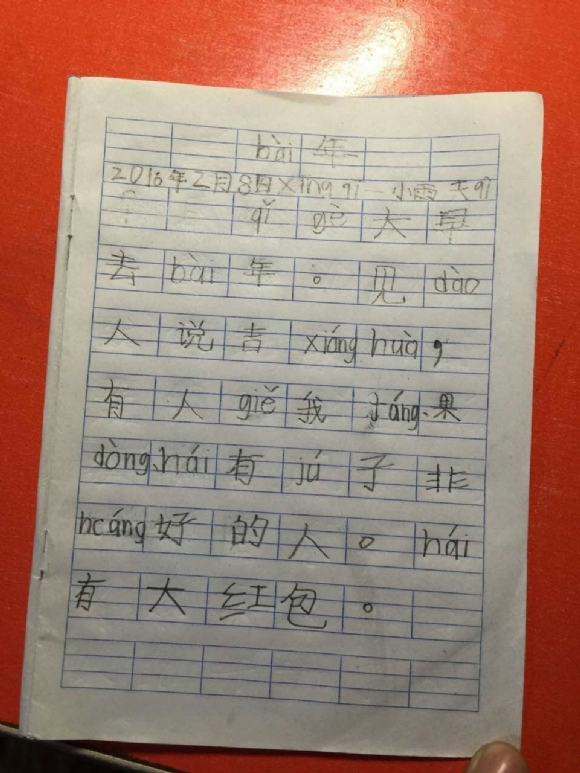 bài 年
2016年2月8日xīng qī一 小雨 天qì
qǐ gè 大 早
去 bài 年 。 见 dào
人 说 吉 xiáng huà ，
有 人 giě 我 táng、果
dòng、hái 有 jú 子 非
hcáng 好 的 人 。 hái
有 大 红 包 。